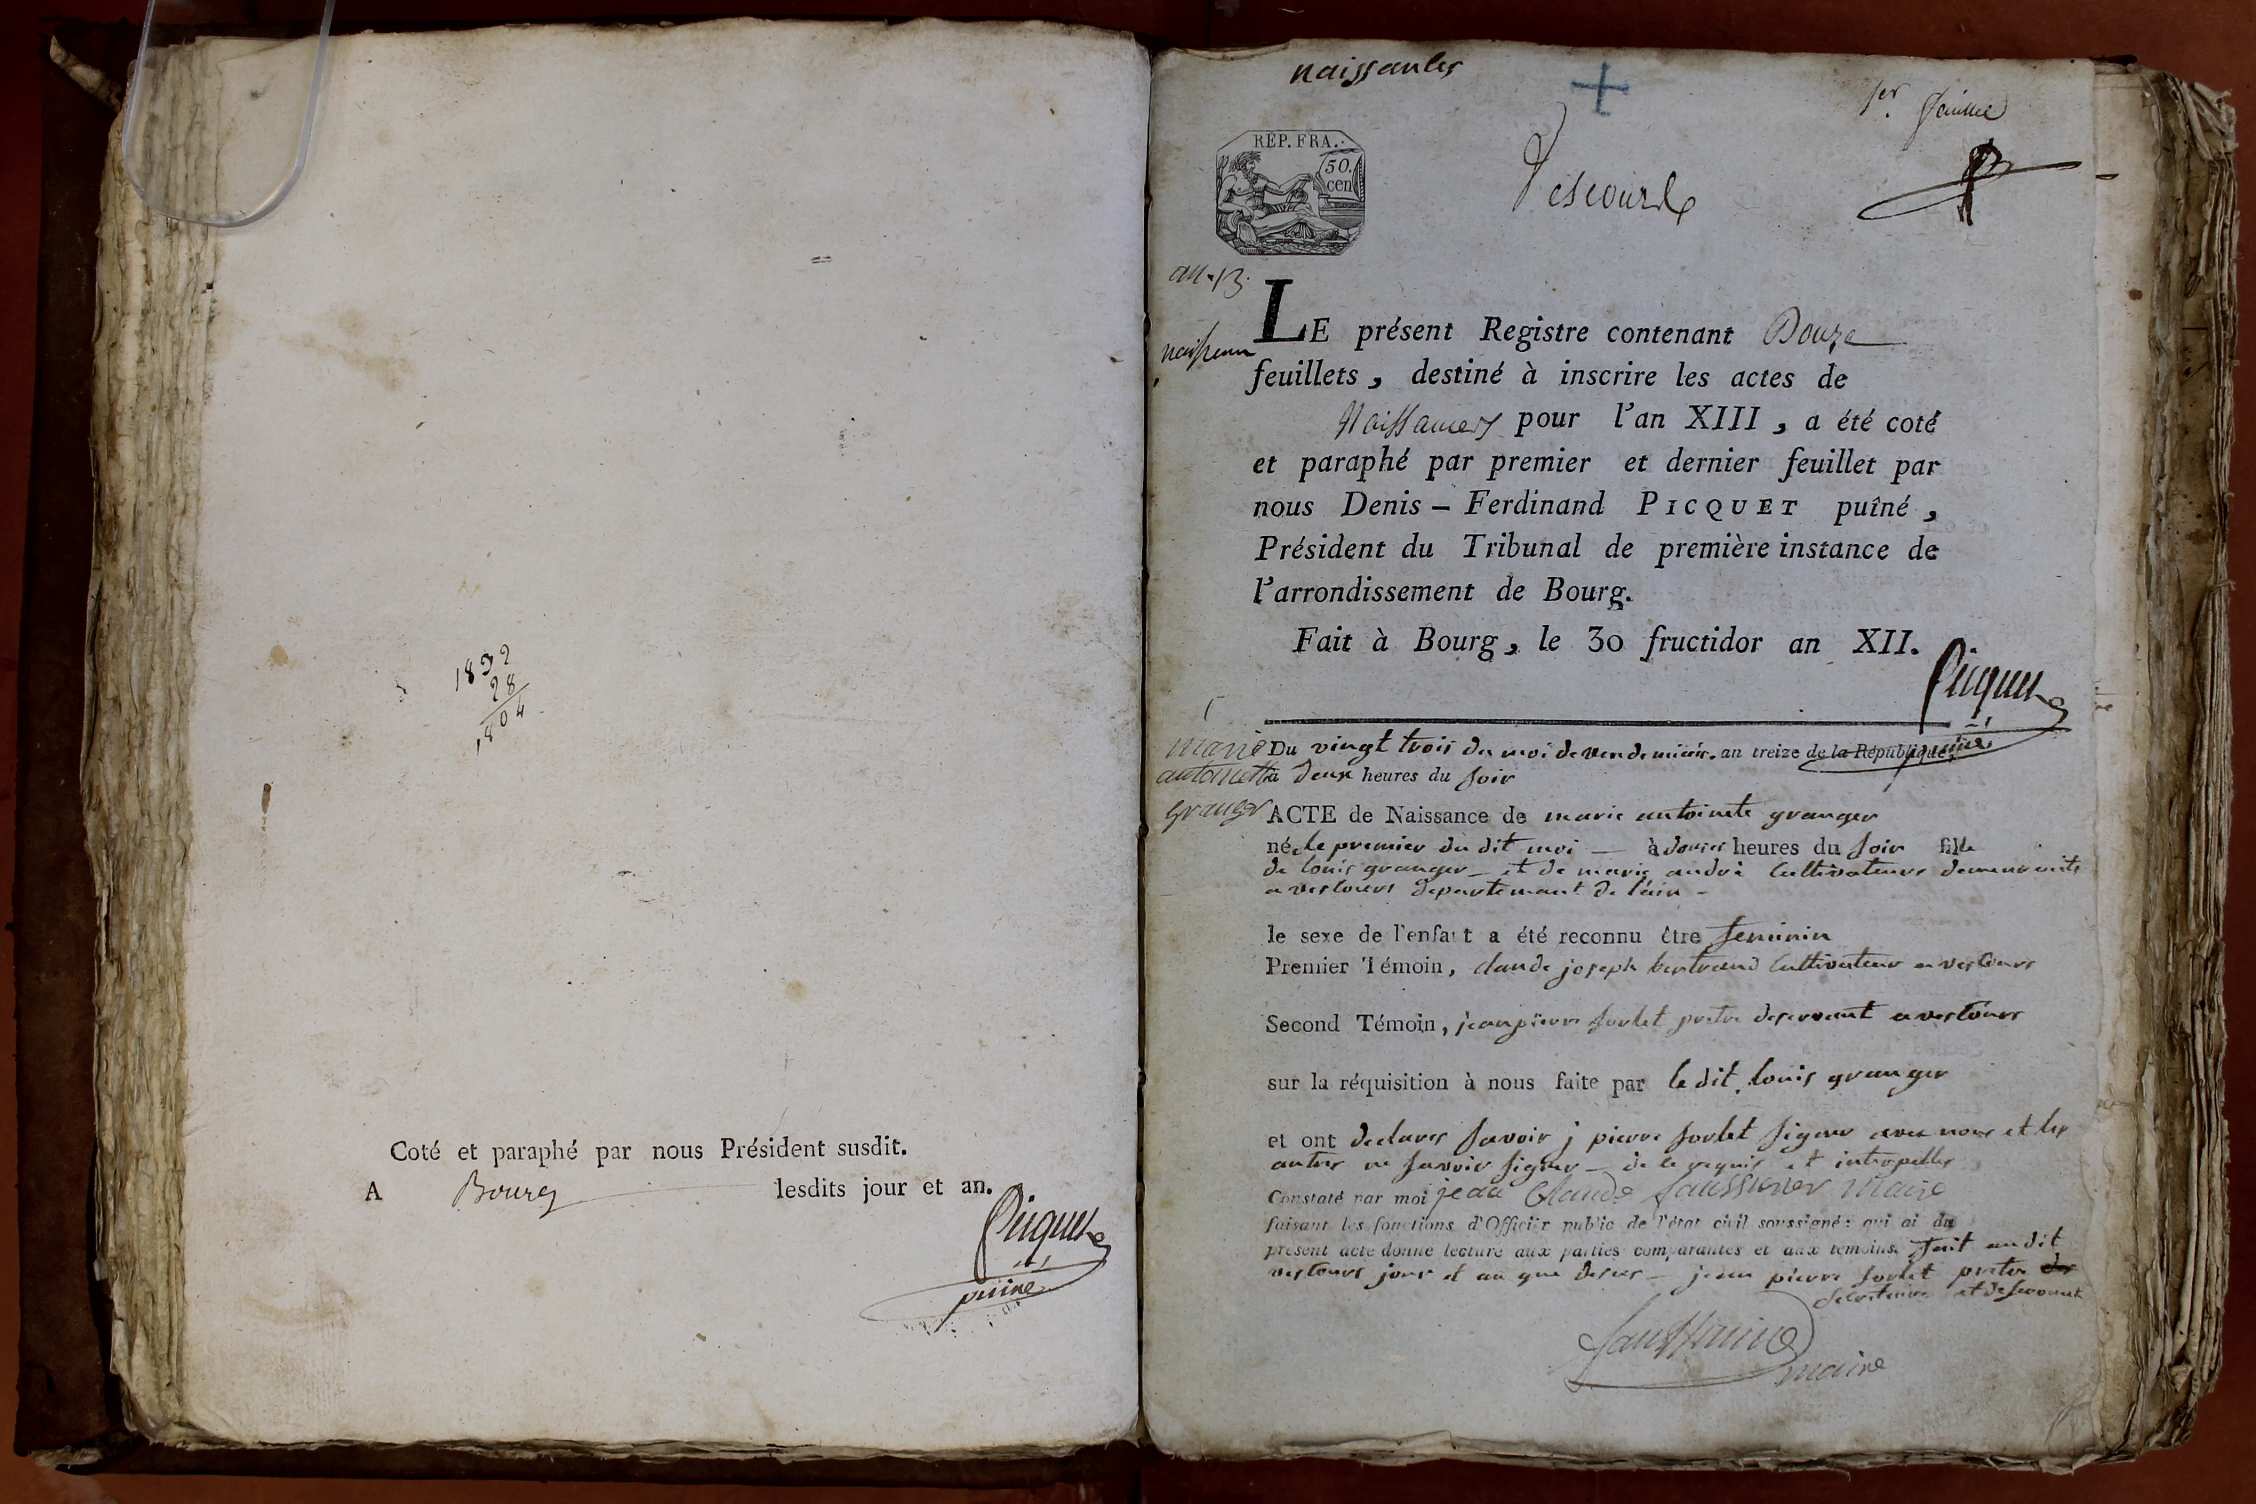 1832
28
1804
Coté et paraphé par nous Président susdit.
A Bourg lesdits jour et an.
Picquet
puiné
naissances
1er. feuillet
REP. FRA.
50.
cen
Vescours
an. 13.
LE présent Registre contenant Douze
feuillets, destiné à inscrire les actes de
Naissances pour l'an XIII, a été coté
et paraphé par premier et dernier feuillet par
nous Denis – Ferdinand PICQUET puîné,
Président du Tribunal de première instance de
l'arrondissement de Bourg.
Fait à Bourg, le 30 fructidor an XII.
Picquet
puiné
1
marie
antoinette
granger
Du vingt trois du moi de vendemiair. an treize de la République,
à deux heures du soir
ACTE de Naissance de marie antoinete granger
née le premier du dit moi — à heures du soir fille
de louis granger — et de marie andré cultivateurs demeurants
a vescours departemant de l'ain —
le sexe de l'enfant a été reconnu être feminin
Premier Témoin, claude joseph bertrand cultivateur a vescours
Second Témoin, jean pierre prêtre deservant a vescours
sur la réquisition à nous faite par le dit louis granger
et ont declares savoir j pierre signer avec nous et les
autres ne savoir signer — de ce requis et interpelles
Constaté par moi jean Claude maire
faisant les fonctions d'Officier public de l'état civil soussigné: qui ai du
présent acte donné lecture aux parties comparantes et aux témoins. fait au dit
vescours jour et an que desus — jean pierre pretre
secretaire et deservant
maire